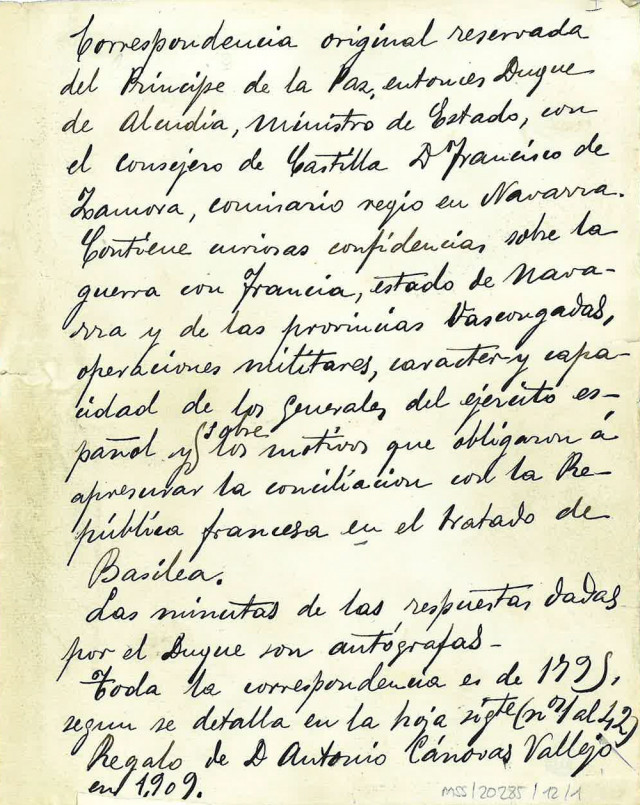 I
Correspondencia original reservada
del Príncipe de la Paz, entonces Duque
de Alcudia, Ministro de Estado, con
el consejero de Castilla D Francisco de
Zamora, comisario regio en Navarra.
Contiene curiosas confidencias sobre la
guerra con Francia, estado de Nava-
rra y de las provincias Vascongadas,
operaciones militares, caracter y capa-
cidad de los Generales del ejército es-
pañol y sobre los motivos que obligaron á
apresurar la conciliacion con la Re-
pública francesa en el tratado de
Basilea.
Las minutas de las respuestas dadas
por el Duque son autógrafas-
Toda la correspondencia es de 1795,
segun se detalla en la hoja sigte (nos 1 al 42)
Regalo de D Antonio Cánovas Vallejo
en 1.909.
MSS/20285/12/1